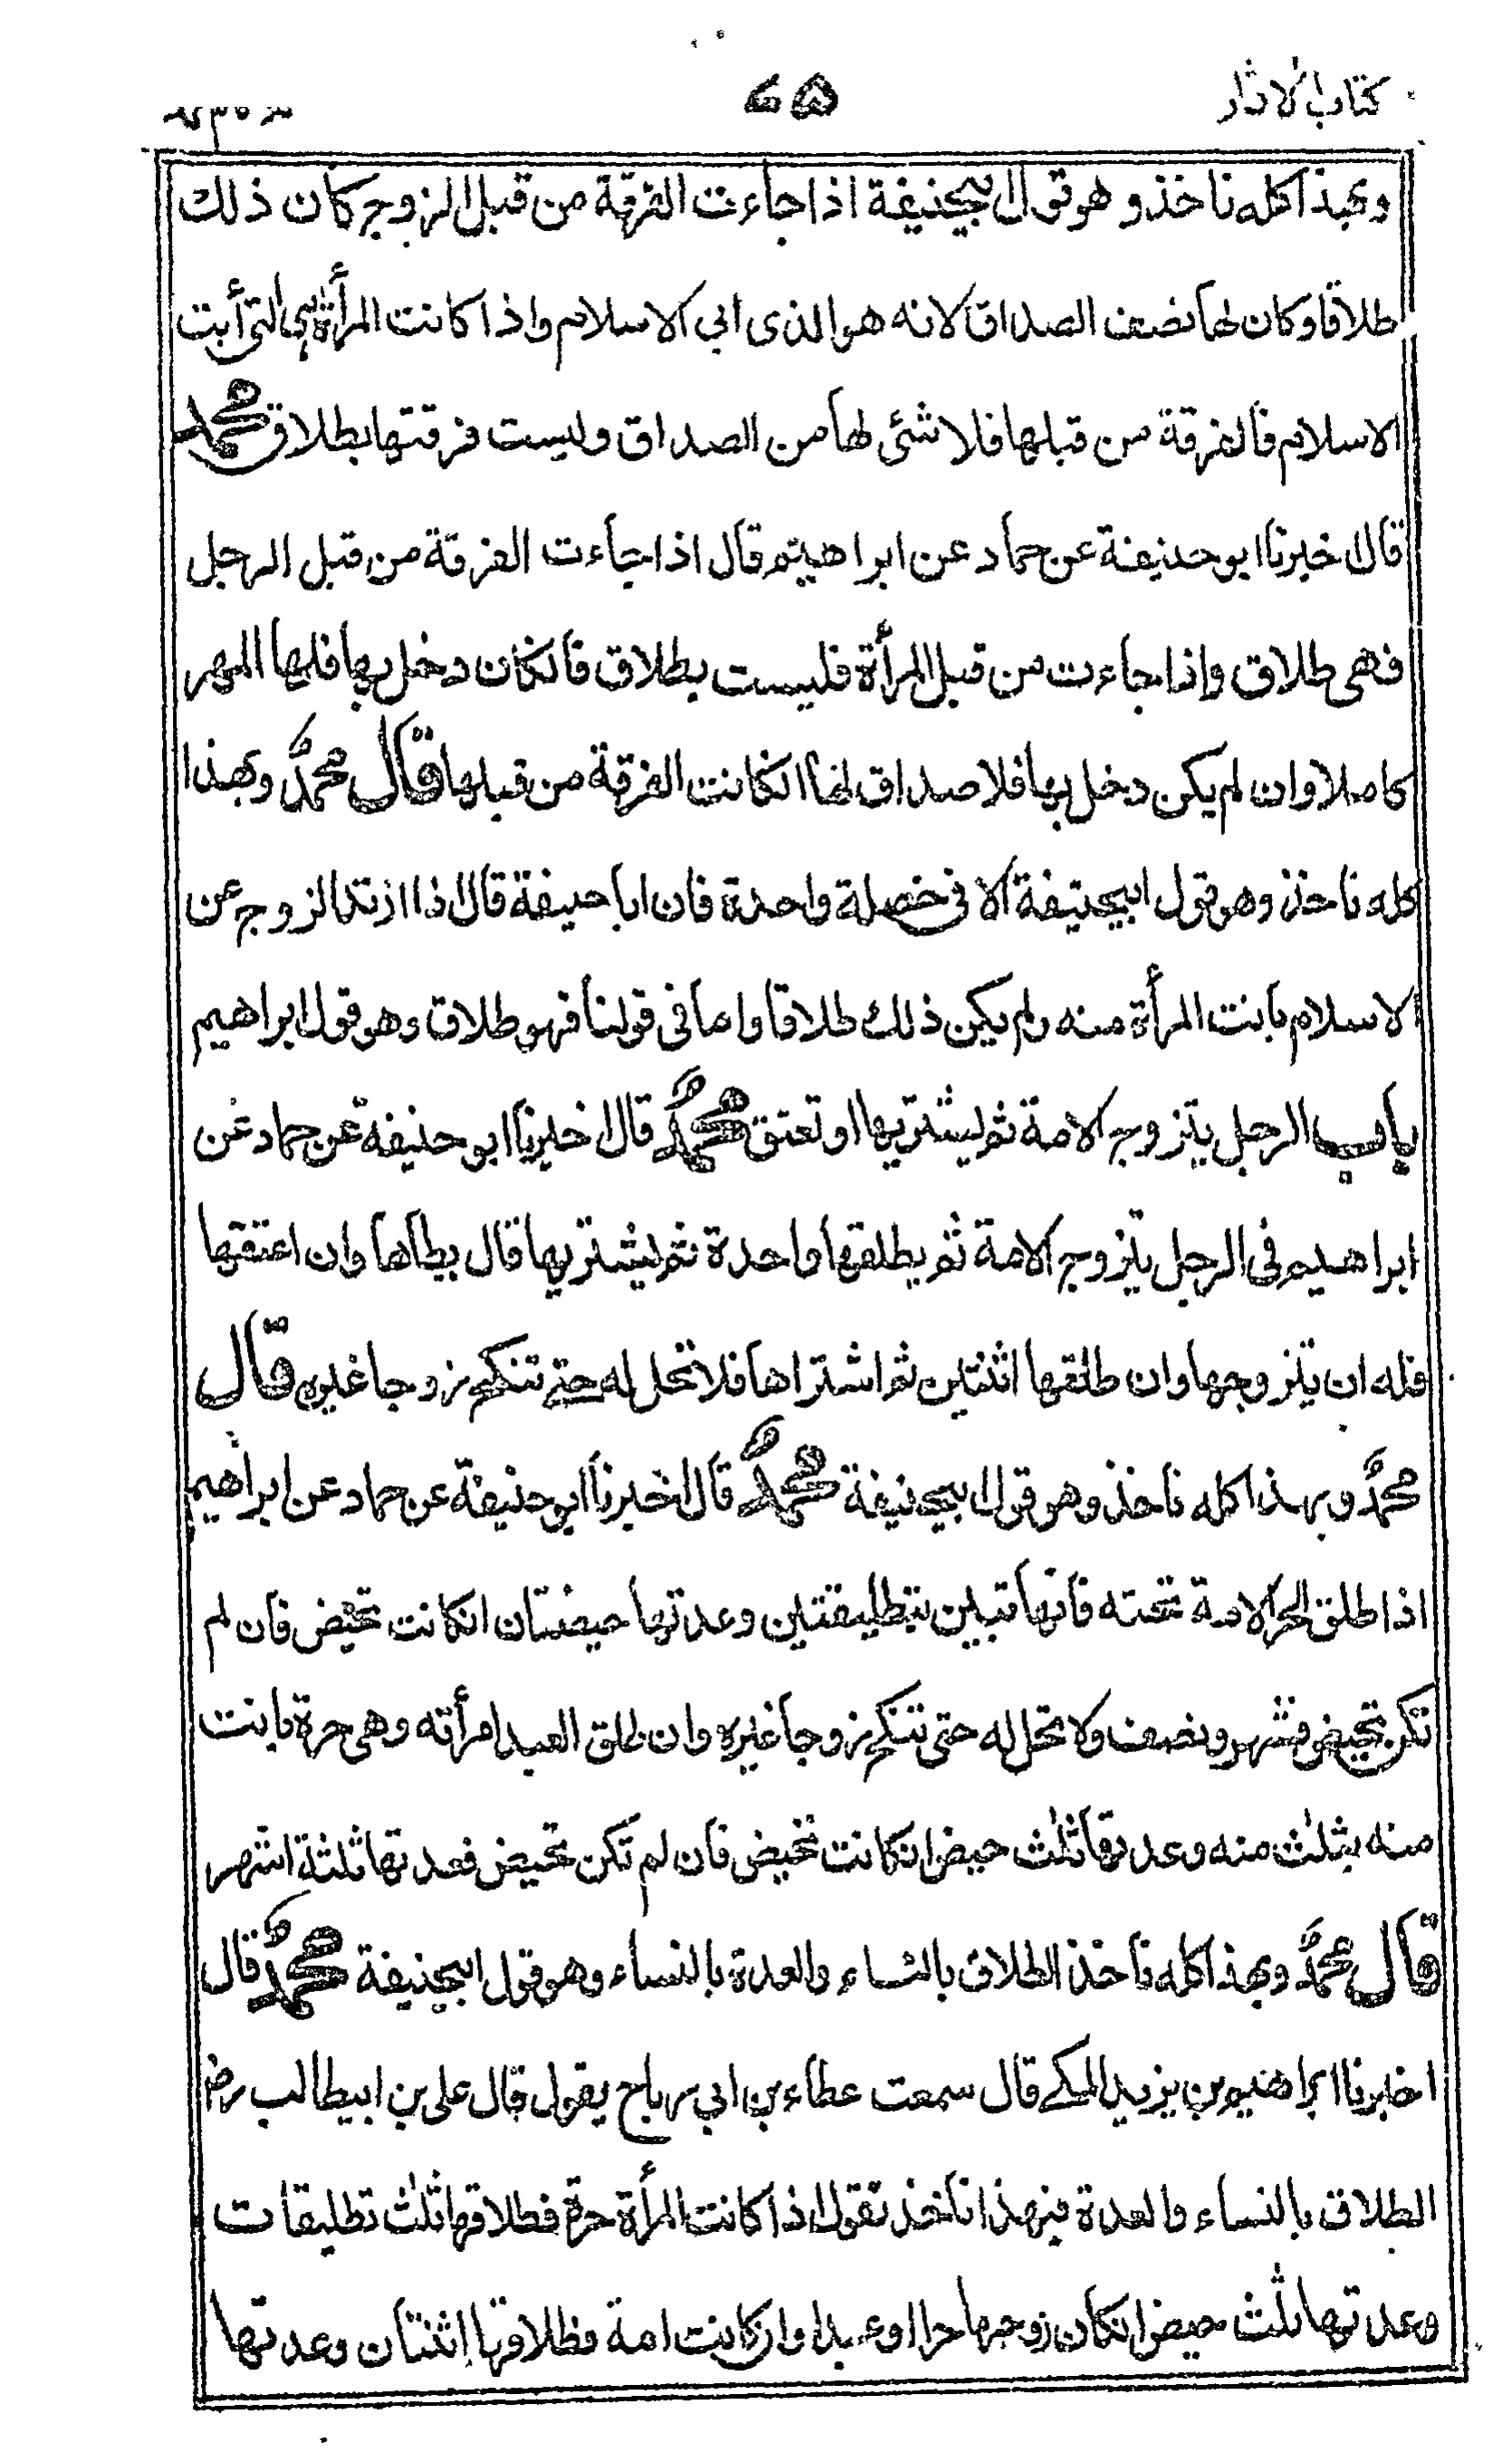 كتاب الاثار
٧٥
وبهذا كله ناخذ وهو قول ابيحنيفة اذا جاءت الفرقة من قبل الزوج كان ذلك
طلاقا وكان لها نصف الصداق لانه هو الذى ابى الاسلام واذا كانت المرأة هى التى أبت
الاسلام فالفرقة من قبلها فلا شئى لها من الصداق وليست فرقتها بطلاق محمد
قال اخبرنا ابو حنيفة عن حماد عن ابراهيم قال اذا جاءت الفرقة من قبل الرجل
فهى طلاق واذا جاءت من قبل المرأة فليست بطلاق فانكان دخل بها فلها المهر
كاملا وان لم يكن دخل بها فلا صداق لها انكانت الفرقة من قبلها قال محمد وبهذا
كله ناخذ وهو قول ابيحنيفة الا فى خصلة واحدة فان ابا حنيفة قال اذا ارتد الزوج عن
الاسلام بانت المرأة منه ولم يكن ذلك طلاقا واما فى قولنا فهو طلاق وهو قول ابراهيم
باب الرجل يتزوج الامة ثم يشتريها او تعتق محمد قال اخبرنا ابو حنيفة عن حماد عن
ابراهيم فى الرجل يتزوج الامة ثم يطلقها واحدة ثم يشتريها قال يطأها وان اعتقها
فله ان يتزوجها وان طلقها اثنتين ثم اشتراها فلا تحل له حتى تنكح زوجا غيره قال
محمد وبهذا كله ناخذ وهو قول ابيحنيفة محمد قال اخبرنا ابو حنيفة عن حماد عن ابراهيم
اذا طلق الحر الامة تحته فانها تبين بتطليقتين وعدتها حيضتان انكانت تحيض فان لم
تكن تحيض فشهر ونصف ولا تحل له حتى تنكح زوجا غيره وان طلق العبد امرأته وهى حرة بانت
منه بثلث منه وعدتها ثلث حيض انكانت تحيض فان لم تكن تحيض فعدتها ثلثة اشهر
قال محمد وبهذا كله ناخذ الطلاق بالنساء والعدة بالنساء وهو قول ابيحنيفة محمد قال
اخبرنا ابراهيم بن يزيد المكى قال سمعت عطاء بن ابى رباح يقول قال على بن ابيطالب رض
الطلاق بالنساء والعدة فبهذا ناخذ نقول اذا كانت المرأة حرة فطلاقها ثلث تطليقات
وعدتها ثلث حيض انكان زوجها حرا او عبدا وان كانت امة فطلاقها اثنتان وعدتها